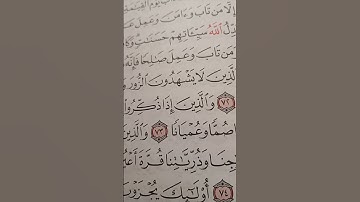 إِلَّا مَن تَابَ وَءَامَنَ وَعَمِلَ عَ
دِّلُ ٱللَّهُ سَيِّـَٔاتِهِمْ حَسَنَٰتٍ وَكَ
مَن تَابَ وَعَمِلَ صَٰلِحًا فَإِنَّهُ
لَّذِينَ لَا يَشْهَدُونَ ٱلزُّورَ وَ
٧٢ وَٱلَّذِينَ إِذَا ذُكِّرُوا
صُمًّا وَعُمْيَانًا ٧٣ وَٱلَّذِينَ
جِنَا وَذُرِّيَّٰتِنَا قُرَّةَ أَعْيُ
٧٤ أُو۟لَٰٓئِكَ يُجْزَوْنَ